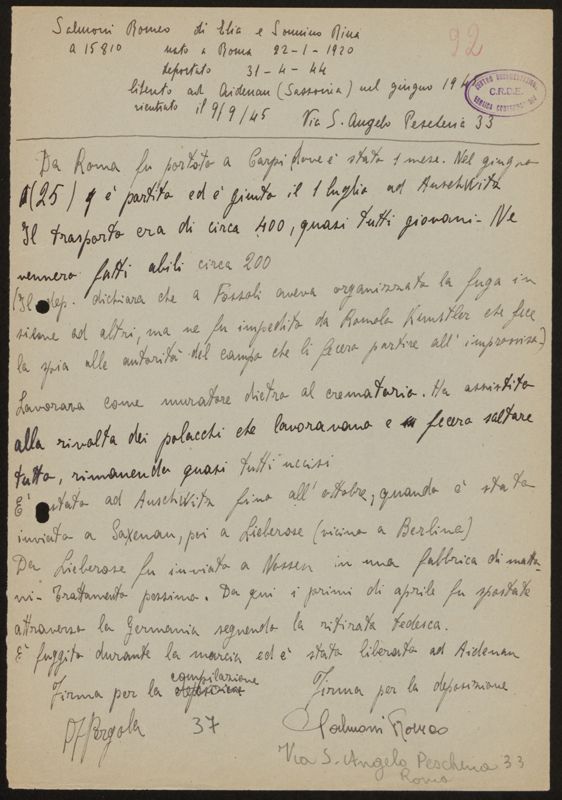 Salmoni Romeo di Elia e Sonnino Rina
92
A 15810 nato a Roma 22-1-1920
deportato 31-4-44
liberato ad Aidenau (Sassonia) nel giugno 1945
CENTRO DOCUMENTAZIONE
C.R.D.E.
EBRAICA CONTEMPORANEA
rientrato il 9/9/45 Via S. Angelo Pescheria 33
Da Roma fu portato a Carpi dove è stato 1 mese. Nel giugno
(25) è partito ed è giunto il 1 luglio ad Auschwitz
Il trasporto era di circa 400, quasi tutti giovani - Ne
vennero fatti abili circa 200
(Il dep. dichiara che a Fossoli aveva organizzato la fuga in
sieme ad altri, ma ne fu impedito da Romolo Kunstler che fece
la spia alle autorità del campo che li fecero partire all'improvviso)
Lavorava come muratore dietro al crematorio. Ha assistito
alla rivolta dei polacchi che lavoravano e fecero saltare
tutto, rimanendo quasi tutti uccisi
E' stato ad Auschwitz fino all'ottobre, quando è stato
inviato a Saxenau, poi a Lieberose (vicino a Berlino)
Da Lieberose fu inviato a Nossen in una fabbrica di matto-
ni - Trattamento pessimo. Da qui i primi di aprile fu spostato
attraverso la Germania seguendo la ritirata tedesca.
E' fuggito durante la marcia ed è stato liberato ad Aidenau
Firma per la compilazione Firma per la deposizione
37 Salmoni Romeo
Via S. Angelo Pescheria 33
Roma